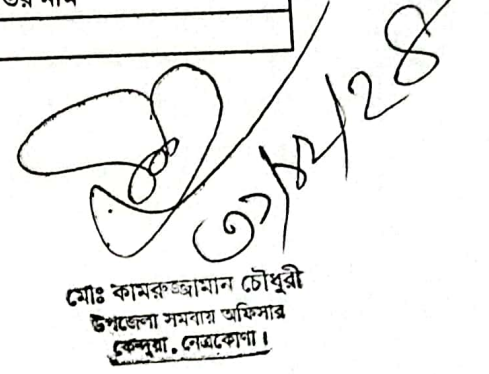 নাম
৩১/১২/২৪
মোঃ কামরুজ্জামান চৌধুরী
উপজেলা সমবায় অফিসার
কেন্দুয়া, নেত্রকোণা।